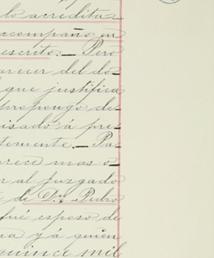 lo acredita
acompaño en
escrito. — Pero
parecer del do
que justifica
propongo de
isado á pre
temente. — Pa
arece mas o
r al juzgado
de Dn. Pedro
fué esposo de
na y á quien
quince mil